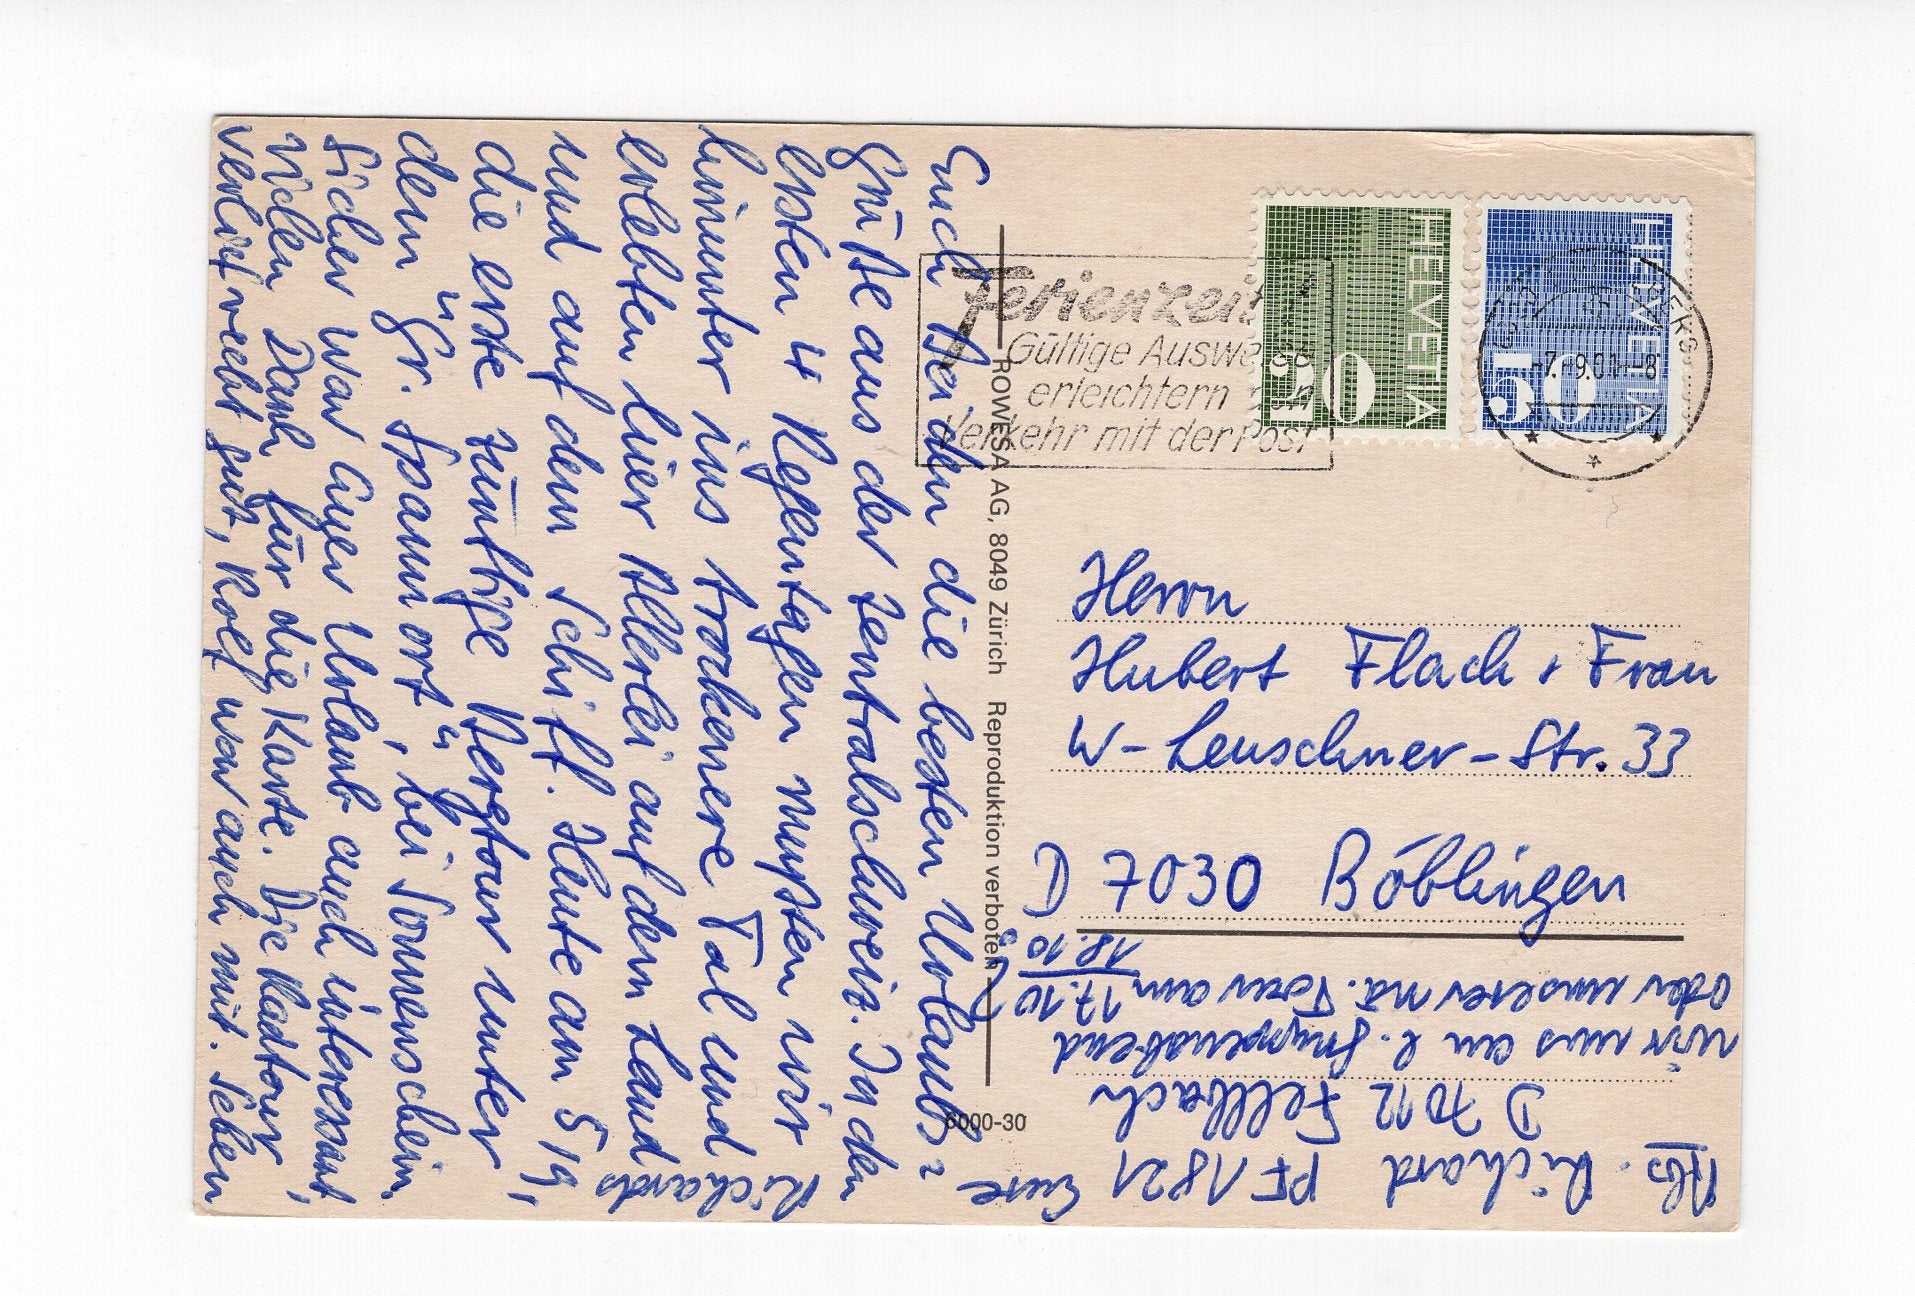 Euch Beiden die besten Urlaubs=
Grüße aus der Zentralschweiz. In den
ersten 4 Regentagen mußten wir
hinunter ins trockenere Tal und
erlebten hier Allerlei auf dem Land
und auf dem Schiff. Heute am 5/9,
die erste zünftige Bergtour unter
dem "Gr. Spannort", bei Sonnenschein.
Sicher war Euer Urlaub auch interessant
Vielen Dank für die Karte. Die Radtour,
verlief recht gut, Rolf war auch mit. Sehen
wir uns am l. Gruppenabend
oder unserer nä. Tour am 17.10
18.10 ?
Eure
Richards
Abs. Richard PF 1821
D 7012 Fellbach
Ferienzeit
Gültige Auswe
erleichtern
Verkehr mit der Post
HELVETIA
20
HELVETIA
50
-7.-9.81-8
ROWESA AG, 8049 Zürich Reproduktion verboten
6000-30
Herrn
Hubert Flach + Frau
W-Leuschner-Str. 33
D 7030 Böblingen